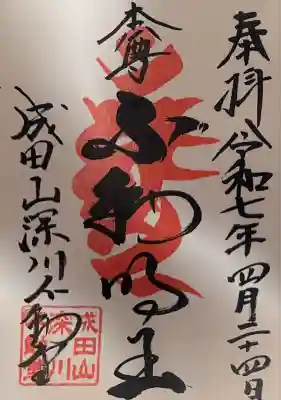 奉拝 令和七年四月二十四日
本尊
不動明王
成田山深川不動堂
成田山
深川
不動堂